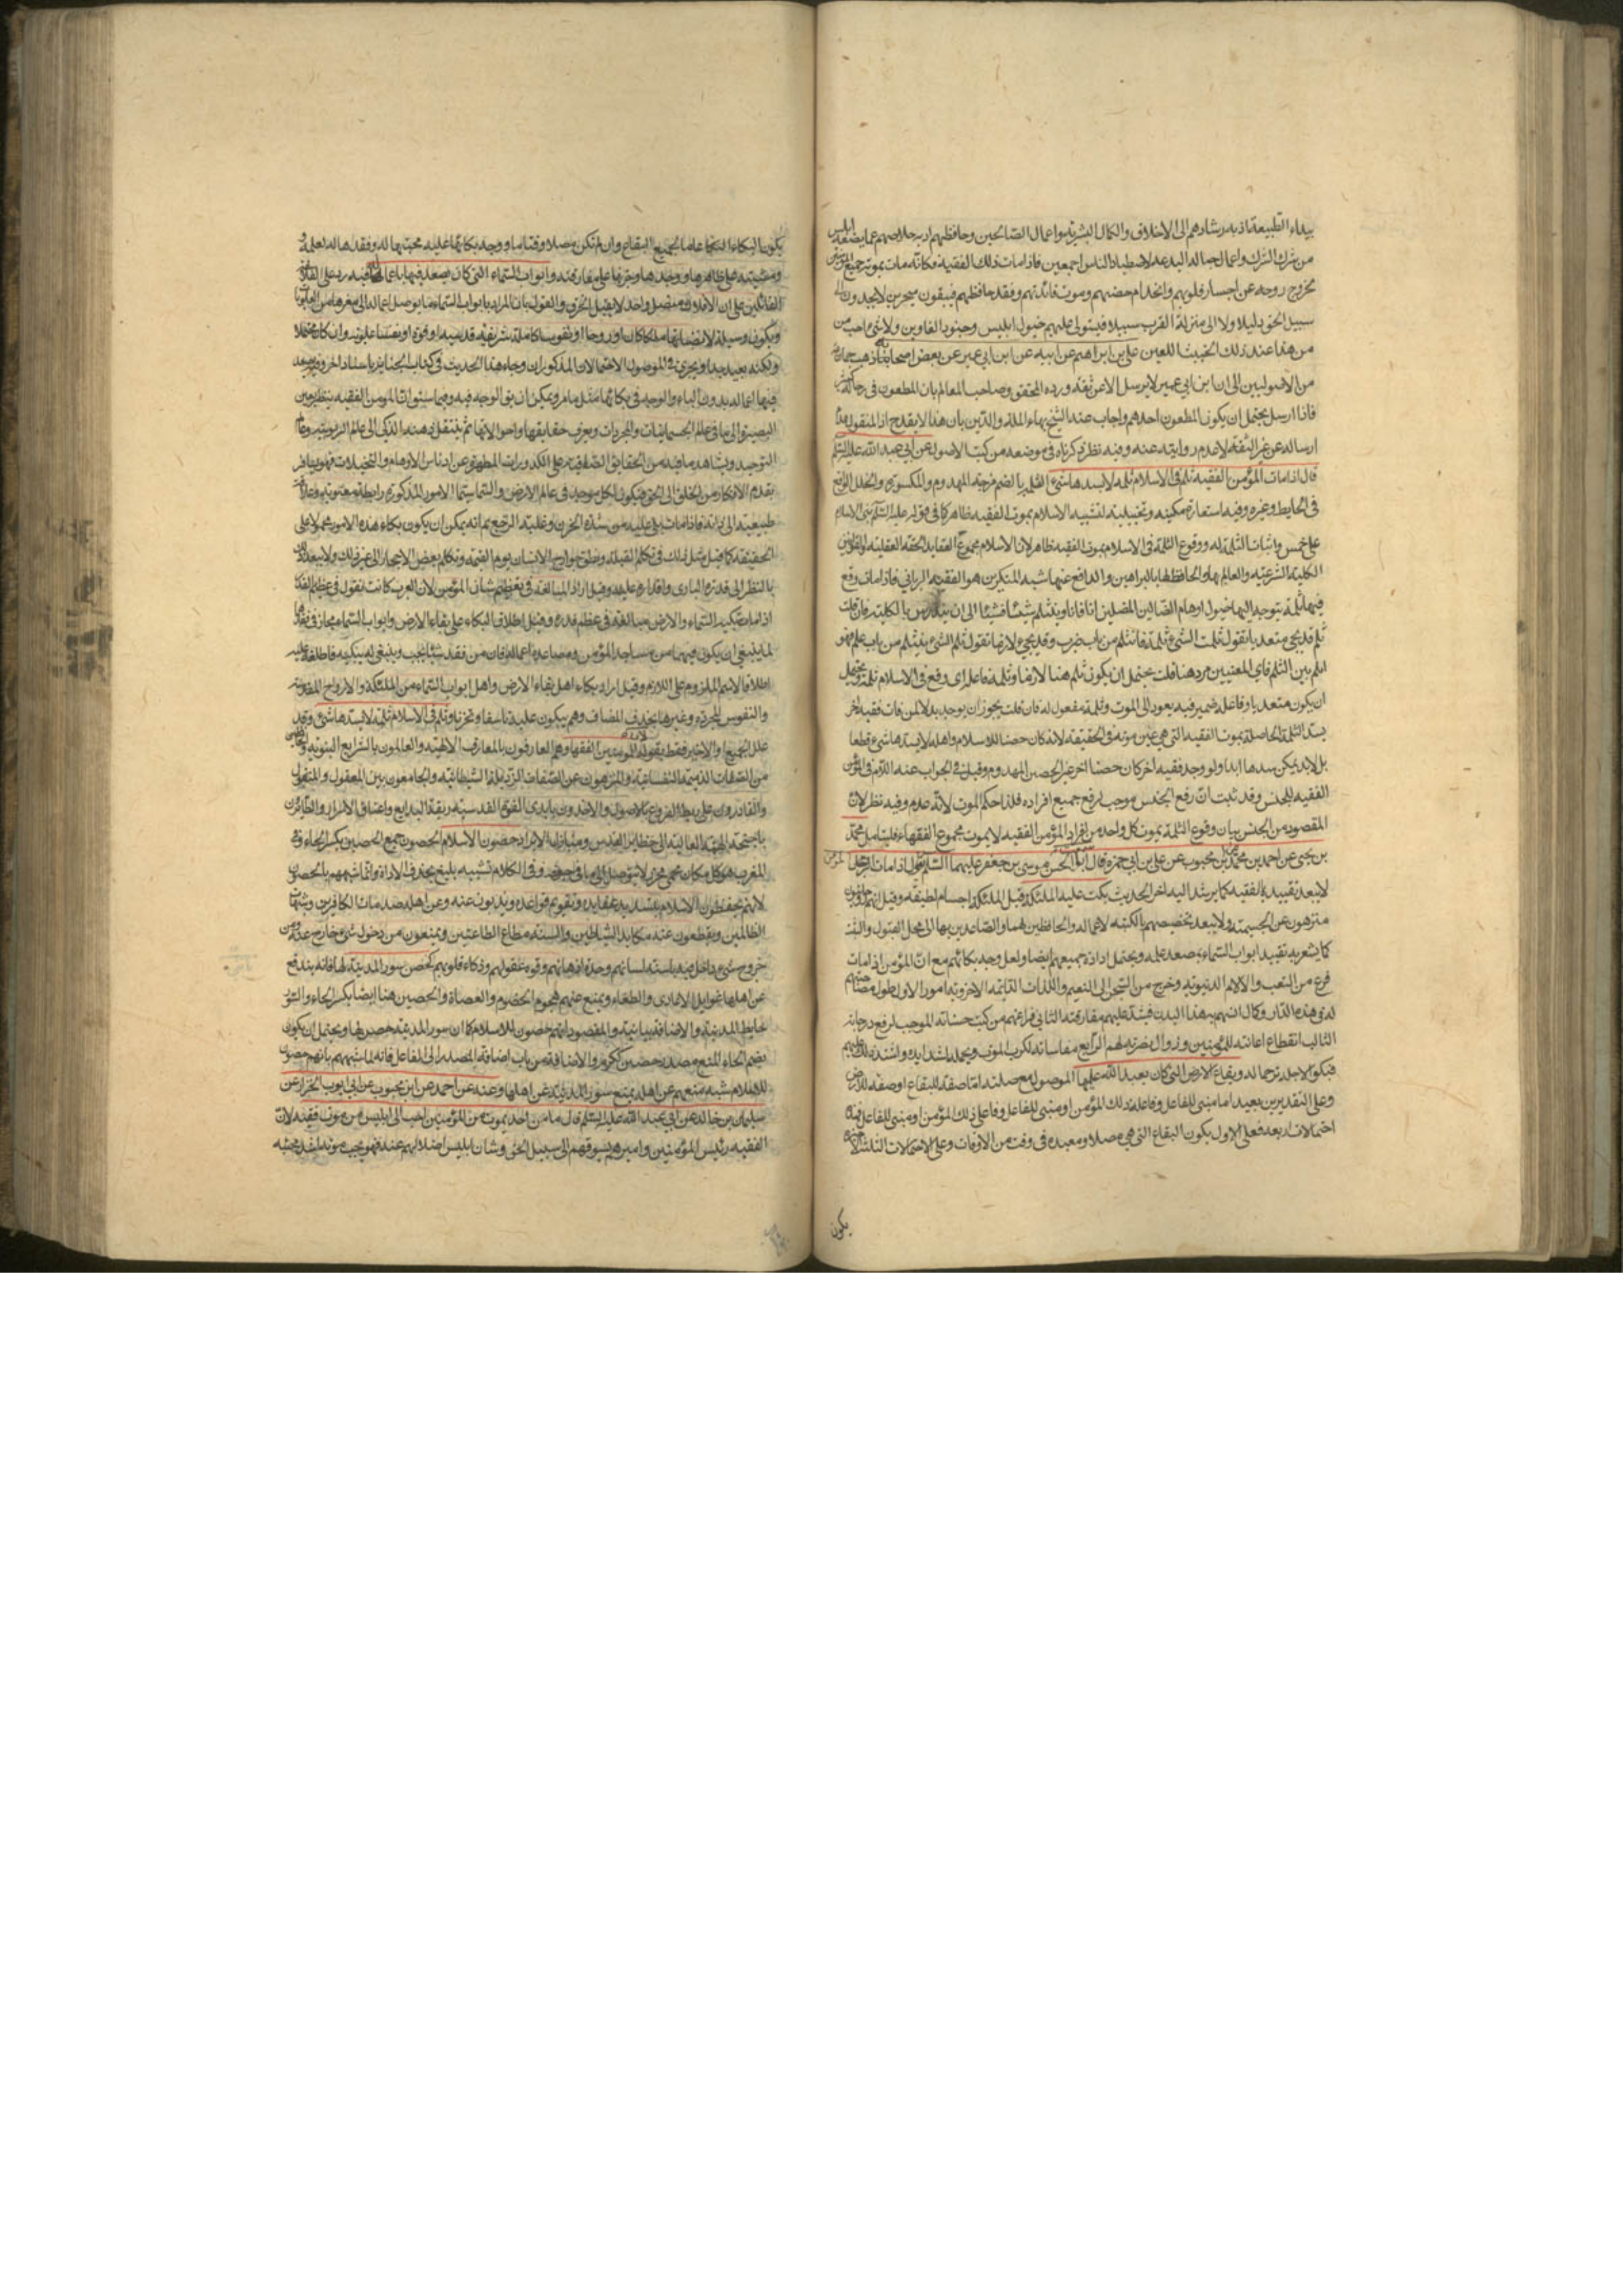 بيداء الطبيعة اذ به رشادهم الى الاخلاق والكمال البشرية واعمال الصالحين وحافظهم اذ به خلاصهم عما يضعه ابليس
من شرك الشرك واعمال حباله اليد عد لاصطياد الناس اجمعين فاذا مات ذلك الفقيه فكانه مات بموته جميع المؤمنين
بخروج روحه عن اجساد قلوبهم وانخدام حصنهم وموت قائدهم وفقد حافظهم فيبقون متحيرين لا يجدون الى
سبيل الحق دليلا ولا الى منزلة القرب سبيلا فيستولى عليهم خيول ابليس وجنود الغاوين ولا شئ احب من
من هذا عند ذلك الخبيث اللعين على بن ابراهيم عن ابيه عن ابن ابي عمير عن بعض اصحابه ذهب جماعة
من الاصوليين الى ان ابن ابي عمير لا يرسل الا عن ثقة ورده المحقق وصاحب المعالم بان المطعون في رجاله كثير
فاذا ارسل يحتمل ان يكون المطعون احدهم واجاب عنه الشيخ بهاء الملة والدين بان هذا لا يقدح اذ المنقول عدم
ارساله عن غير الثقة لا عدم روايته عنه وفيه نظر ذكرناه في موضعه من كتب الاصول عن ابي عبد الله عليه السلام
قال اذا مات المؤمن الفقيه ثلم في الاسلام ثلمة لا يسدها شئ الثلمة بالضم فرجة المهدوم والمكسور والخلل الواقع
في الحايط وغيره وفيه استعارة مكنية وتخييلية لتشبيه الاسلام بموت الفقيه ظاهر كما في قوله عليه السلام بنى الاسلام
على خمس واثبات الثلمة له ووقوع الثلمة في الاسلام بموت الفقيه ظاهر لان الاسلام مجموع العقايد الحقة العقلية والقوانين
الكلية الشرعية والعالم بها والحافظ لها بالبراهين والدافع عنها شبه المنكرين هو الفقيه الرباني فاذا مات وقع
فيها ثلمة يتوجه اليها خيول اوهام الضالين المضلين انا فانا وينثلم شيئا فشيئا الى ان يندرس بالكلية فان قلت
ثلم قد يجئ متعديا تقول ثلمت الشئ ثلمة فانثلم من باب ضرب وقد يجئ لازما تقول ثلم الشئ يثلم من باب علم فهو
اثلم بين الثلم فاي المعنيين مرد هنا قلت يحتمل ان يكون ثلم هنا لازما وثلمة فاعله اى وقع في الاسلام ثلمة ويحتمل
ان يكون متعديا وفاعله ضمير فيه يعود الى الموت وثلمة مفعول له فان قلت يجوز ان يوجد بدلا لمن فات فقيه اخر
يسد الثلمة الحاصلة بموت الفقيه التي هي عين موته في الحقيقة لانه كان حصنا للاسلام واهله لا يسدها شئ قطعا
بل لا يمكن سدها ابدا ولو وجد فقيه اخر كان حصنا اخر غير الحصن المهدوم وقيل في الجواب عنه اللام في المؤمن
الفقيه للجنس وقد ثبت ان رفع الجنس موجب لرفع جميع افراده فلذا حكم الموت لانه عدم وفيه نظر لان
المقصود من الجنس بيان وقوع الثلمة بموت كل واحد من افراد المؤمن الفقيه لا بموت مجموع الفقهاء فليتامل محمد
بن يحيى عن احمد بن محمد عن ابن محبوب عن على بن ابي حمزة قال سمعت ابا الحسن موسى بن جعفر عليهما السلام يقول اذا مات المؤمن
لا يبعد تقييده بالفقيه كما يرشد اليه اخر الحديث بكت عليه الملئكة قيل الملئكة اجسام لطيفة وقيل انهم روحانيون
منزهون عن الجسمية ولا يبعد تخصيصهم بالكتبة لاعماله والحافظين لهما والصاعدين بها الى محل القبول والثبت
كما يشعر به تقييد ابواب السماء بصعد عمله ويحتمل ارادة جميعهم ايضا ولعل وجد بكائهم مع ان المؤمن اذا مات
فرغ من التعب والالام الدنيوية وخرج من السجن الى النعيم واللذات الدائمة الاخروية امور الاول طول مصاحبتهم
له في هذه الدار وكمال انسهم بهذا البدن فيشتد عليهم مفارقته الثاني فراغهم من كتب حسناته الموجب لرفع درجاته
الثالث انقطاع اعانته للمؤمنين وزوال نصرته لهم الرابع مقاساته لكرب الموت ويحمله بشدايده واشتد ذلك عليهم
فبكوا لاجله ترحما له وبقاع الارض التي كان يعبد الله عليها الموصول مع صلته اما صفة للبقاع او صفة للارض
وعلى التقديرين يعبد اما مبنى للفاعل وفاعله ذلك المؤمن او مبنى للفاعل وفاعله ذلك المؤمن او مبنى للفاعل فهذه
احتمالات اربعة فعلى الاول يكون البقاع التي هي مصلاه ومعبده في وقت من الاوقات وعلى الاحتمالات الثلثة الاخيرة
يكون
يكون البكاء البكاء عاما لجميع البقاع وان لم تكن مصلاه وقتا ما ووجه بكائها عليه محبتها له وفقدها له لعلمه و
ومشيته على ظاهرها ووجدها وحزنها على مفارقته وابواب السماء التي كان يصعد فيها باعماله فيه رد على الفلاسفة
القائلين على ان الافلاك متصل واحد لا يقبل الخرق والقول بان المراد بابواب السماء ما يوصل اعماله الى مقرها من العلويات
ويكون وسيلة لانضباطها ملكا كان او روحا او نفوسا كاملة شريفة قدسية او قوة او نفسا علوية وان كان محتملا
ولكنه بعيد جدا ويجرى في الموصول الاحتمالان المذكوران وجاء هذا الحديث في كتاب الجنائز باسناد اخر وفيه يصعد
فيها اعماله بدون الباء والوجه في بكائها مثل ما مر ويمكن ان يق الوجه فيه وفيما سبق ان المؤمن الفقيه ينظر بعين
البصيرة الى ما في عالم الجسمانيات والمجردات ويعرف حقايقها واحوالاتها ثم ينتقل ذهنه الذكي الى عالم الربوبية وعالم
التوحيد ويشاهد ما فيه من الحقايق الصافية عن الكدورات المطهرة عن ادناس الاوهام والتخيلات فهو يسافر
بقدم الافكار من الخلق الى الحق فيكون لكل موجود في عالم الارض والسماء سيما الامور المذكورة رابطة معنوية وعلاقة
طبيعية الى ذاته فاذا مات بكى عليه من شدة الحزن وغلبة الوجع ثم انه يمكن ان يكون بكاء هذه الامور محمولا على
الحقيقة كما قيل مثل ذلك في تكلم القبلة ونطق جوارح الانسان يوم القيمة وتكلم بعض الاحجار الى غير ذلك ولا يبعد ذلك
بالنظر الى قدرة البارى واقداره عليه وقيل اراد المبالغة في تعظيم شان المؤمن لان العرب كانت تقول في عظيم القدر
اذا مات تبكيه السماء والارض مبالغة في عظم قدره وقيل اطلاق البكاء على بقاع الارض وابواب السماء مجاز في فقدها
لما ينبغي ان يكون فيهما من مساجد المؤمن ومصاعد اعماله فان من فقد شيئا يحب وينبغي له يبكيه فاطلق عليه
اطلاقا لاسم الملزوم على اللازم وقيل اراد بكاء اهل بقاع الارض واهل ابواب السماء من الملئكة والارواح المقدسة
والنفوس المجردة وغيرها بحذف المضاف وهم يبكون عليه تاسفا وتحزنا وثلم في الاسلام ثلمة لا يسدها شئ وقد
علل الجميع او الاخير فقط بقوله لان المؤمنين الفقهاء وهم العارفون بالمعارف الالهية والعالمون بالشرايع النبوية والخالصون
من الصفات الذميمة النفسانية والمنزهون عن الصفات الرذيلة الشيطانية والجامعون بين المعقول والمنقول
والقادرون على ربط الفروع بالاصول والاخذون بايدى القوة القدسية ربقة البدايع واعناق الاسرار والطائرون
باجنحة الهمة العالية الى حظاير القدس ومنازل الابرار حصون الاسلام الحصون جمع الحصن بكسر الحاء وفي
المغرب هو كل مكان محمى محرز لا يتوصل الى ما في جوفه وفي الكلام تشبيه بليغ بحذف الاداة وانما شبههم بالحصون
لانهم يحفظون الاسلام بتسديد عقايده وتقويم قواعده ويذبون عنه وعن اهله صدمات الكافرين وشبهات
الظالمين ويقطعون عنه مكايد الشياطين والسنة مطاع الطاعنين ويمنعون من دخول شئ خارج عنه ومن
خروج شئ داخل فيه باسنة لسانهم وحدة اذهانهم وقوة عقولهم وذكاء قلوبهم كحصن سور المدينة لها فانه يدفع
عن اهلها غوايل الاعادى والطغاة ويمنع عنهم هجوم الخصوم والعصاة والحصين هنا ايضا بكسر الحاء والسور
حايط المدينة والاضافة بيانية والمقصود انهم حصون للاسلام كما ان سور المدينة حصن لها ويحتمل ان يكون
بضم الحاء المنع مصدر حصن ككرم والاضافة من باب اضافة المصدر الى الفاعل فانه لما شبههم بانهم حصون
للاسلام شبه منعهم عن اهله بمنع سور المدينة عن اهلها وعنه عن احمد عن ابن محبوب عن ابي ايوب الخزاز عن
سليمان بن خالد عن ابي عبد الله عليه السلام قال ما من احد يموت من المؤمنين احب الى ابليس من موت فقيه لان
الفقيه رئيس المؤمنين واميرهم يسوقهم الى سبيل الحق وشان ابليس اضلالهم عنه فهو يحب موته اشد محبة